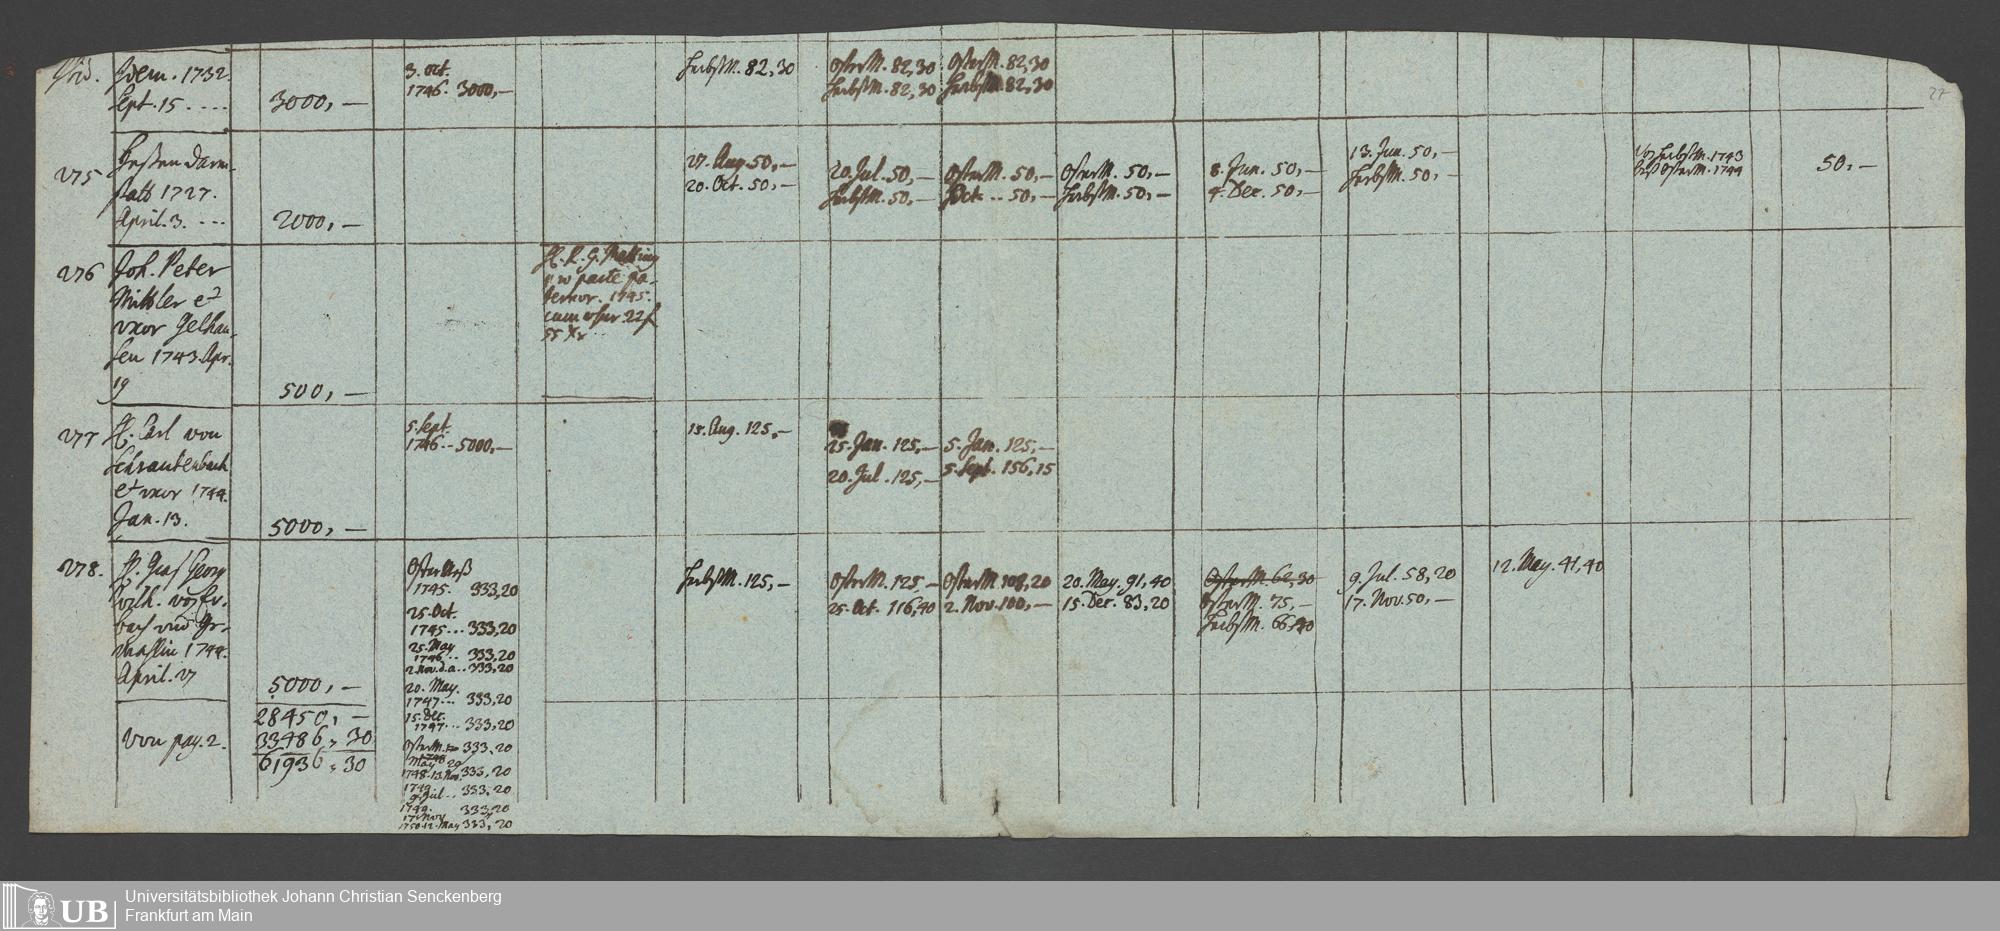 Ibid.
Idem. 1732.
Sept. 15. ....
3000, —
3. Oct.
1746. 3000, —
HerbstM. 82, 30
OsterM. 82, 30
HerbstM. 82, 30
OsterM. 82, 30
HerbstM. 82, 30
27
275
Hessen Darm-
statt 1727.
April. 3. ...
2000, —
27. Aug. 50, —
20. Oct. 50, —
20. Jul. 50, —
HerbstM. 50, —
OsterM. 50, —
Oct. .. 50, —
OsterM. 50, —
HerbstM. 50, —
8. Jun. 50, —
4. Dec. 50, —
13. Jun. 50, —
HerbstM. 50, —
HerbstM. 1743
OsterM. 1744
50, —
276
Joh. Peter
et
uxor Gelhau-
sen 1743. Apr.
19
500, —
H. R. G.
parte pa-
1745.
cum 22 f
55 Xr
277
H. Carl von
Schrautenbach
et uxor 1744.
Jan. 13.
5000, —
5. Sept.
1746 .. 5000, —
15. Aug. 125, —
25. Jan. 125, —
20. Jul. 125, —
5. Jan. 125, —
5. Sept. 156, 15
278.
H. Graf Georg
Wilh. von Er-
bach und Ge-
mahlin 1744.
April. 27
5000, —
28450, —
Von pag. 2.
33486, 30
61936, 30
OsterMeß
1745. 333, 20
25. Oct.
1745 ... 333, 20
25. May
1746 .. 333, 20
2. Nov. d. a. .. 333, 20
20. May.
1747 ... 333, 20
15. Dec.
1747 ... 333, 20
OsterM. 333, 20
1748
May 29
1748. 13. Nov. 333, 20
1749.
9. Jul .. 333, 20
1749. 333, 20
17. Nov
1750. 12. May 333, 20
HerbstM. 125, —
OsterM. 125, —
25. Oct. 116, 40
OsterM. 108, 20
2. Nov. 100, —
20. May. 91, 40
15. Dec. 83, 20
OsterM. 62, 30
OsterM. 75, —
HerbstM. 66, 40
9. Jul. 58, 20
17. Nov. 50, —
12. May. 41, 40
UB
Universitätsbibliothek Johann Christian Senckenberg
Frankfurt am Main